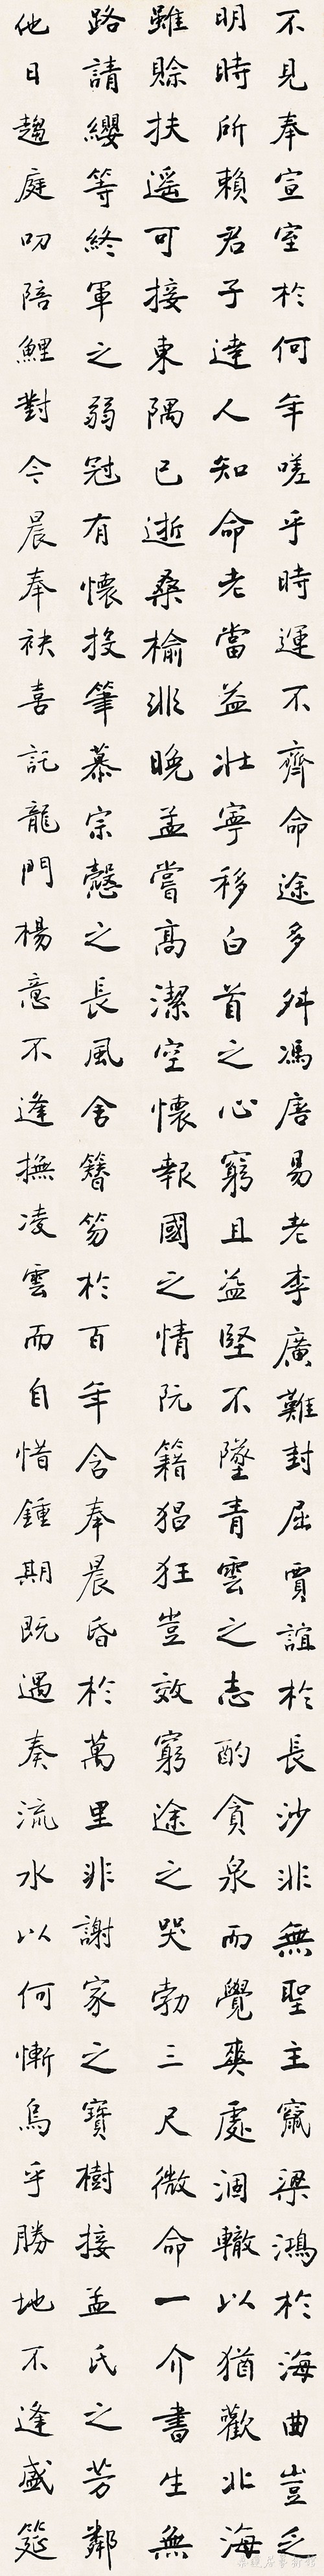 不見奉宣室於何年嗟乎時運不齊命途多舛馮唐易老李廣難封屈賈誼於長沙非無聖主竄梁鴻於海曲豈乏
明時所賴君子達人知命老當益壯寧移白首之心窮且益堅不墜青雲之志酌貪泉而覺爽處涸轍以猶歡北海
雖賒扶遥可接東隅已逝桑榆非晚孟嘗高潔空懷報國之情阮籍猖狂豈效窮途之哭勃三尺微命一介書生無
路請纓等終軍之弱冠有懷投筆慕宗慤之長風舍簪笏於百年含奉晨昏於萬里非謝家之寶樹接孟氏之芳鄰
他日趨庭叨陪鯉對今晨奉袂喜託龍門楊意不逢撫凌雲而自惜鍾期既遇奏流水以何慚烏乎勝地不逢盛筵